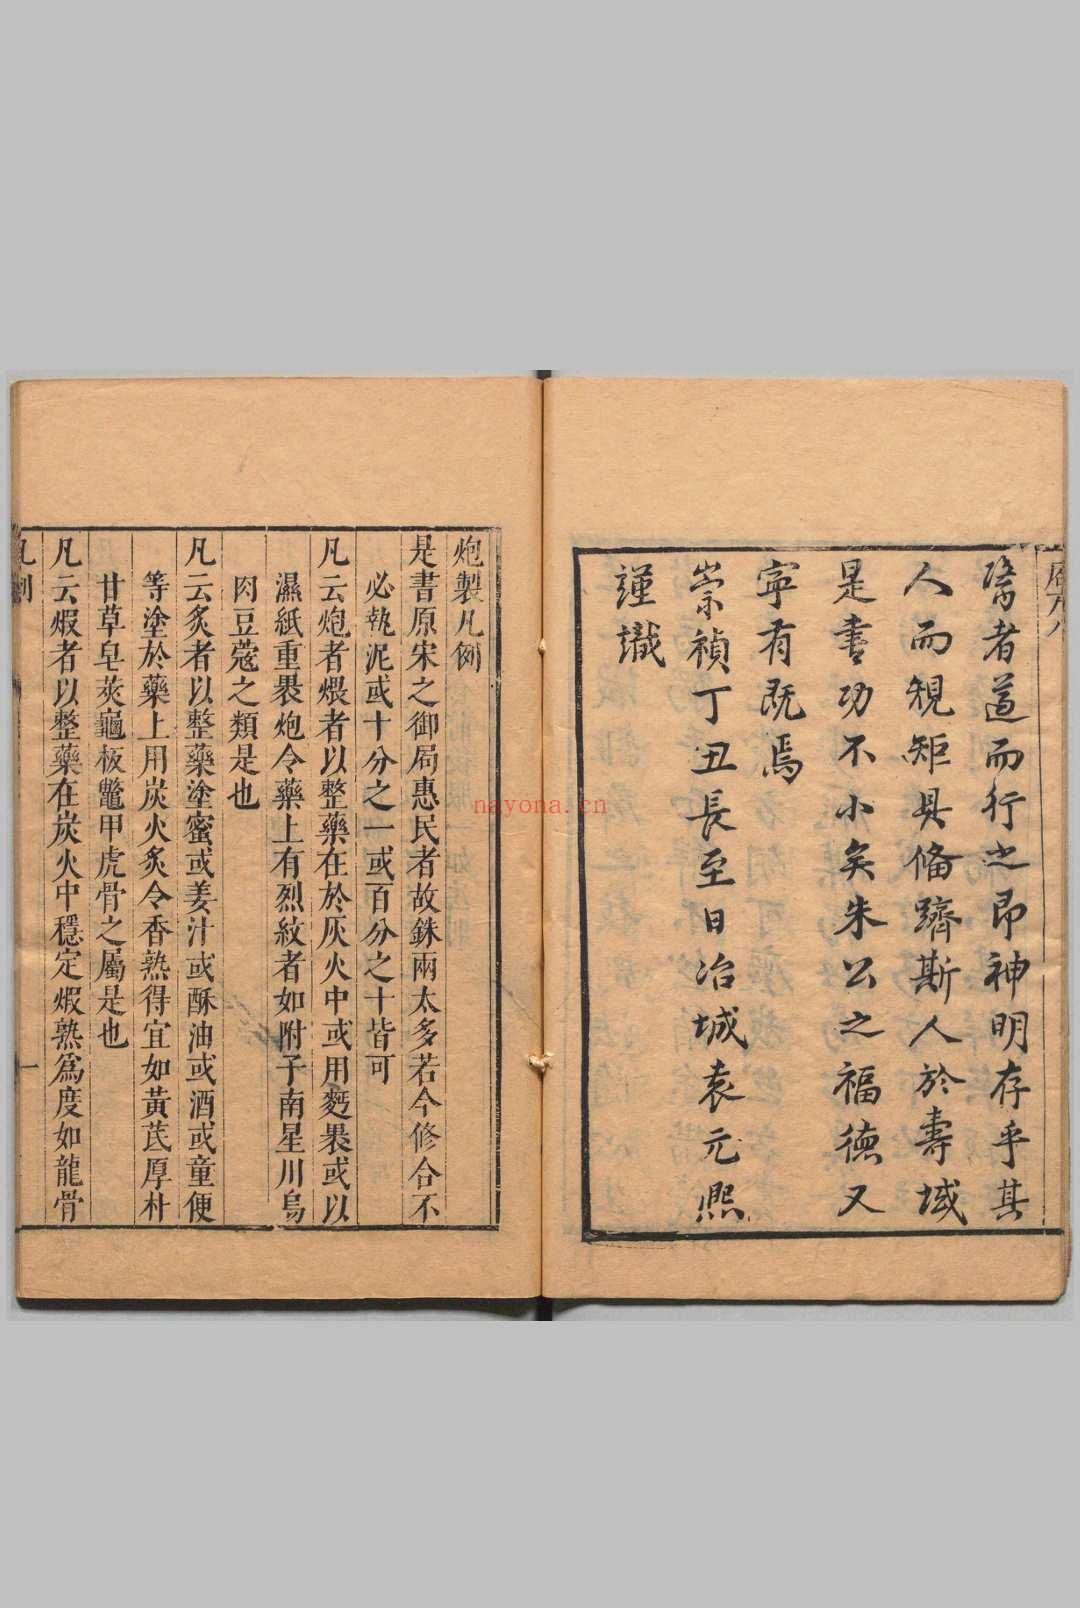 醫者遵而行之即神明存乎其
人而規矩具備躋斯人於壽域
是書功不小矣朱公之福德又
寧有既焉
崇禎丁丑長至日冶城袁元熈
謹識
炮製凡例
是書原宋之御局惠民者故銖兩太多若今修合不
必執泥或十分之一或百分之十皆可
凡云炮者煨者以整藥在於灰火中或用麪裹或以
濕紙重裹炮令藥上有烈紋者如附子南星川烏
肉豆蔻之類是也
凡云炙者以整藥塗蜜或姜汁或酥油或酒或童便
等塗於藥上用炭火炙令香熟得宜如黃芪厚朴
甘草皂莢龜板鼈甲虎骨之屬是也
凡云煆者以整藥在炭火中穩定煆熟爲度如龍骨
凡例 一
nayona.cn